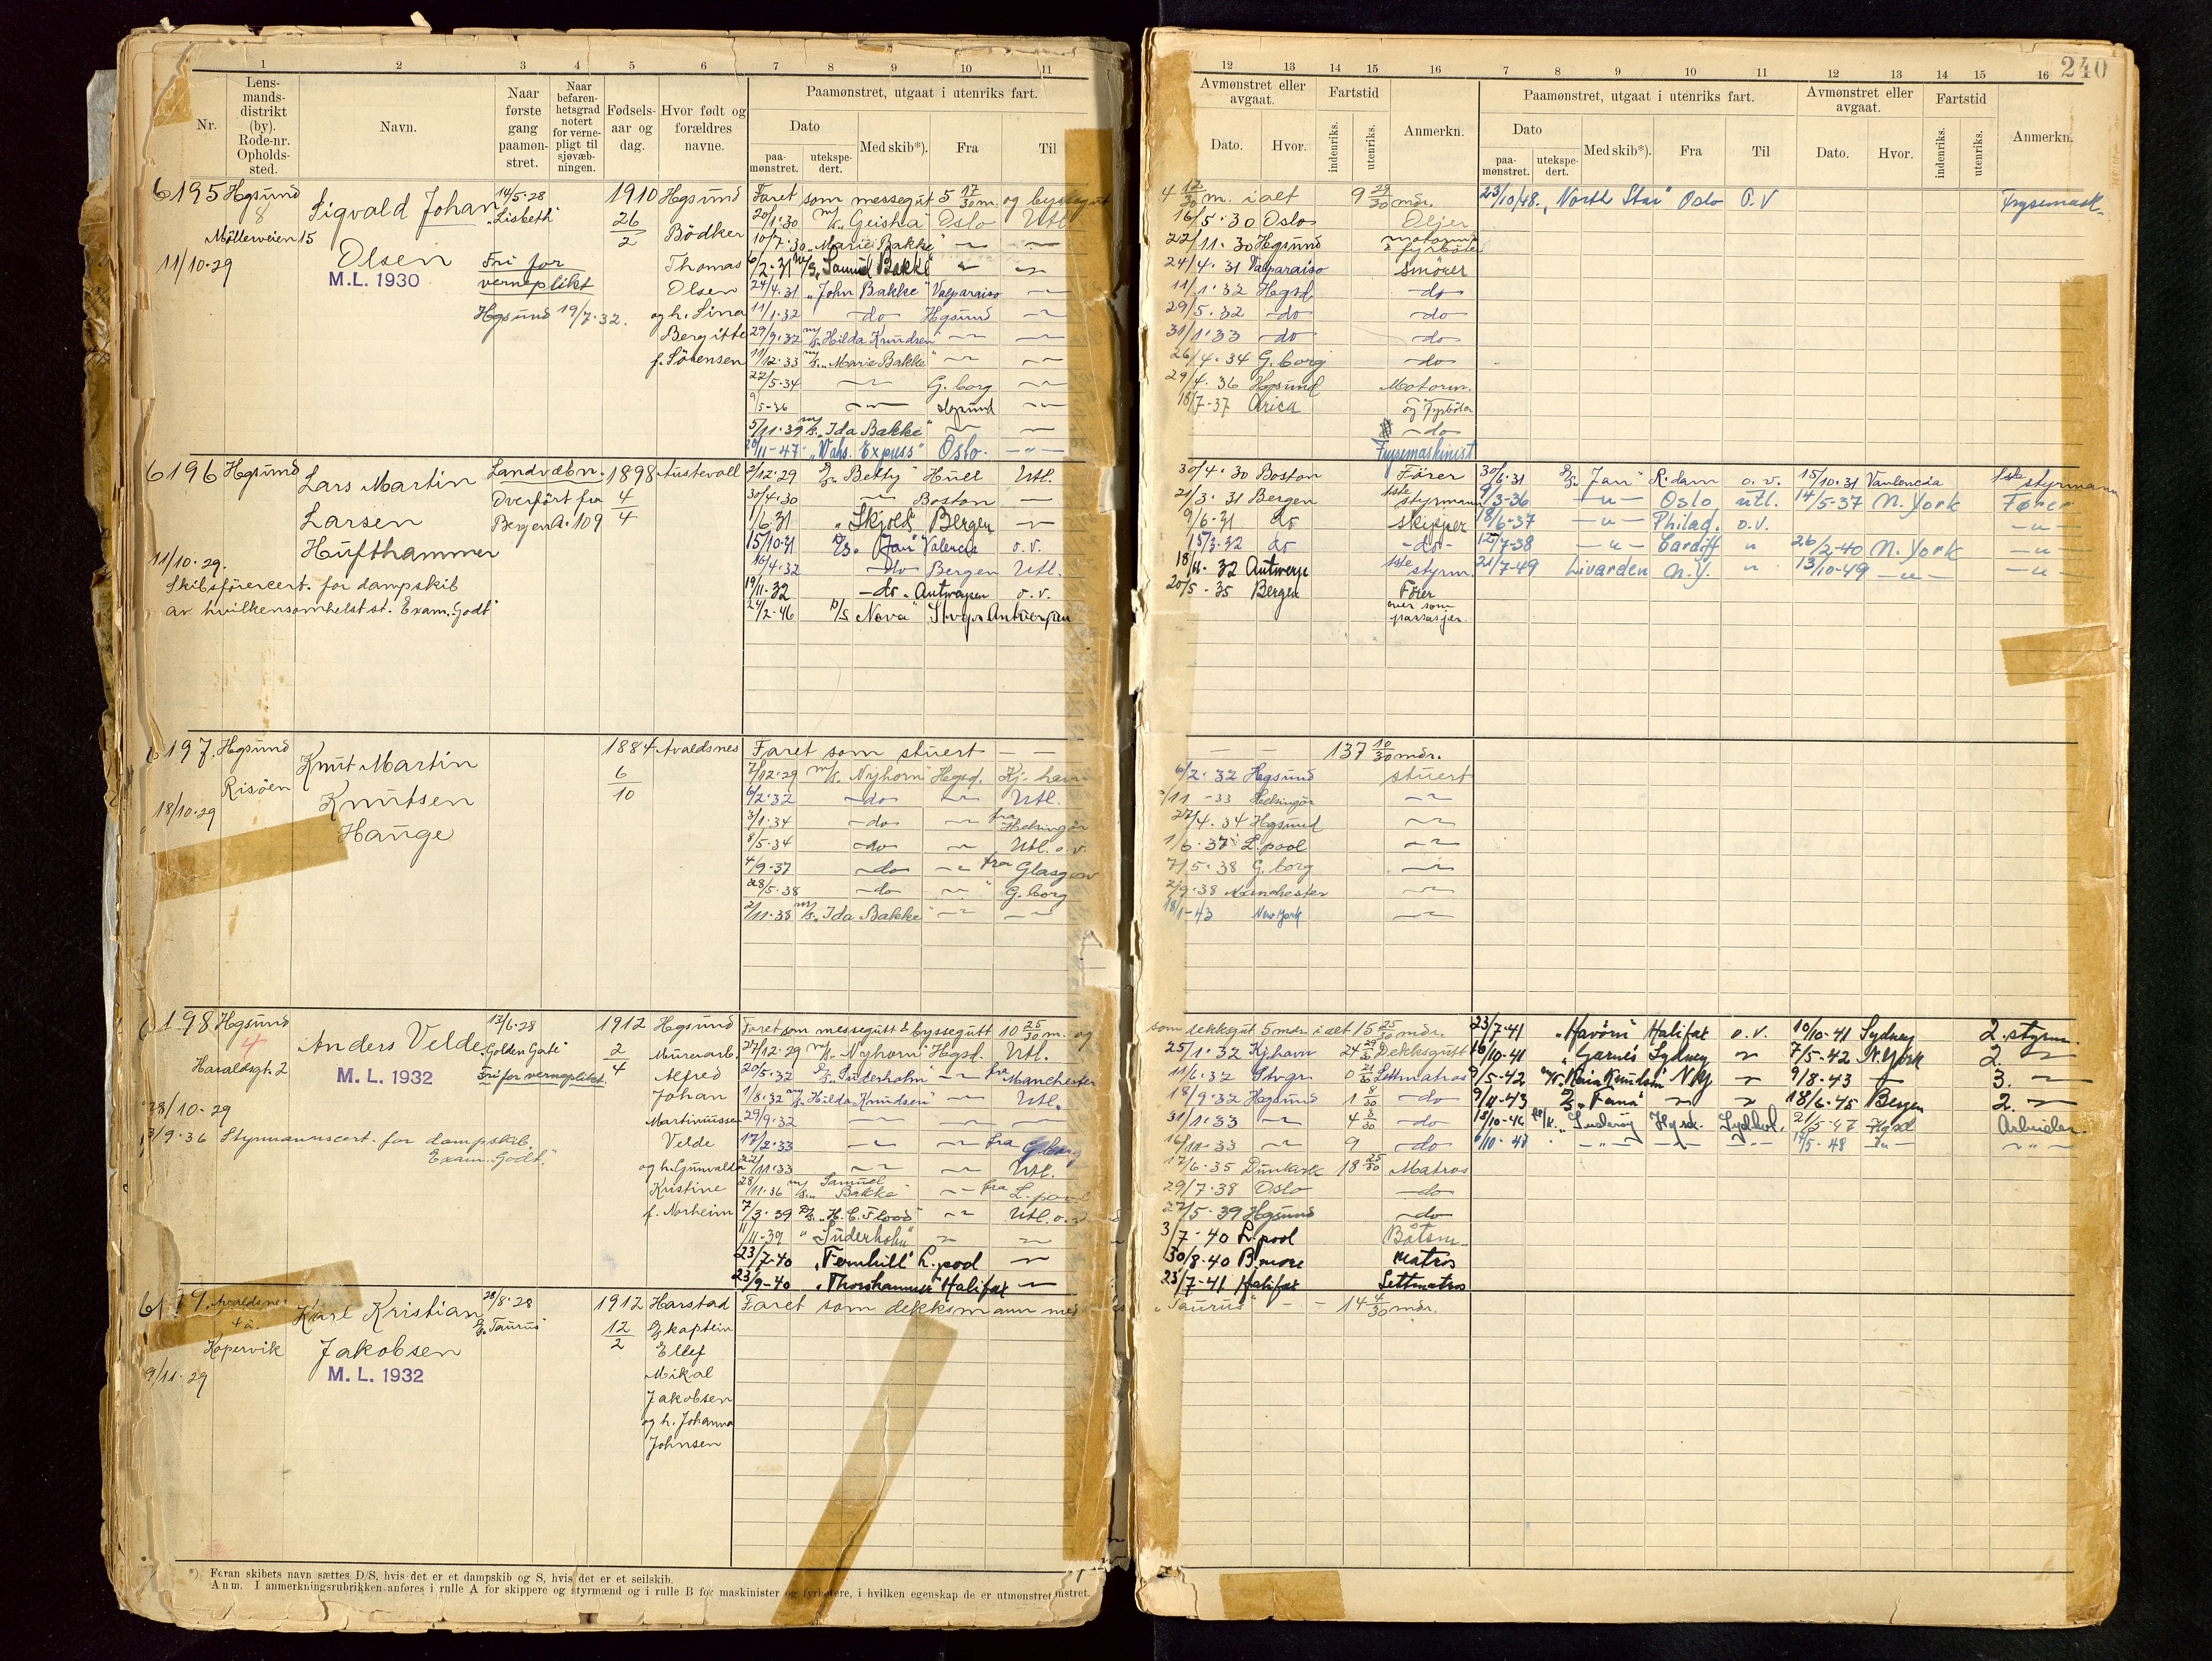 240
1 2 3 4 5 6 7 8 9 10 11
12 13 14 15 16 7 8 9 10 11 12 13 14 15 16
Nr.
Lens-
mands-
distrikt
(by).
Rode-nr.
Opholds-
sted.
Navn.
Naar
første
gang
paamøn-
stret.
Naar
befaren-
hetsgrad
notert
for verne-
pligt til
sjøvæb-
ningen.
Fødsels-
aar og
dag.
Hvor født og
forældres
navne.
Paamønstret, utgaat i utenriks fart.
Dato
paa-
mønstret.
utekspe-
dert.
Med skib*).
Fra
Til
Avmønstret eller
avgaat.
Dato.
Hvor.
Fartstid
indenriks.
utenriks.
Anmerkn.
Paamønstret, utgaat i utenriks fart.
Dato
paa-
mønstret.
utekspe-
dert.
Med skib*).
Fra
Til
Avmønstret eller
avgaat.
Dato.
Hvor.
Fartstid
indenriks.
utenriks.
Anmerkn.
6195 Hgsund
8
Möllerveien 15
11/10-29
Sigvald Johan
Olsen
M.L. 1930
14/5-28
"Lisbeth"
Fri for
verneplikt
Hgsund 19/7-32.
1910
26/2
Hgsund
Bödker
Thomas
Olsen
og h. Sina
Bergitte
f. Sörensen
Faret som messegut 5 17/30 m. og byssegut
20/1-30 m/s "Geisha" Oslo Utl.
10/7-30 "Marie Bakke"
6/2-31 m/s "Samuel Bakke"
24/4-31 "John Bakke" Valparaiso
11/1-32 do Hgsund
29/9-32 m/s "Hilda Knudsen"
11/12-33 m/s "Marie Bakke"
22/5-34 G.borg
9/5-36 Hgsund
5/11-39 m/s "Ida Bakke"
20/11-47 Oslo
4 12/30 m. i alt 9 29/30 mdr.
16/5-30 Oslo
22/11-30 Hgsund
24/4-31 Valparaiso smörer
11/1-32 Hgsd. do
29/5-32 do do
31/1-33 do do
26/4-34 G.borg do
29/4-36 Hgsund Motorm.
18/7-37 Arica og Fyrböter
do
Frysemaskinist
23/10/48. "North Star" Oslo O.V Frysemask.
6196 Hgsund
11/10-29.
Lars Martin
Larsen
Hufthammer
Skibsförercert. for dampskib
av hvilkensomhelst st. Exam. "Godt"
Landvæbn.
Overfört fra
Bergen A. 109
1898
4/4
Austevoll
2/12-29 "Betty" Huel Utl.
30/4-30 Boston
1/6-31 "Skjold" Bergen
15/10-31 "Jan" Valencia o.v.
16/4-32 do Bergen Utl.
19/11-32 do Antwerpen o.v.
24/2-46 D/S "Nova" Stvgr. Antwerpen
30/4-30 Boston Förer
21/3-31 Bergen 1ste styrmann
9/6-31 do skipper
15/3-32 do do
18/11-32 Antwerp 1ste styrm.
20/5-35 Bergen Förer
over som
passasjer.
30/6-31 "Jan" R.dam o.v. 15/10-31 Vanlencia 1ste styrmann
9/3-36 Oslo utl. 14/5-37 N. York Fører
18/6-37 Philad. o.v.
12/7-38 Cardiff 26/2-40 N. York
21/7-49 Livarden N.Y. 13/10-49
6197. Hgsund
Risöen
18/10-29
Knut Martin
Knutsen
Hauge
1884
6/10
Avaldsnes
Faret som stuert 137 10/30 mdr.
7/12-29 m/s "Nyhorn" Hgsd. Kj.havn
6/2-32 do Utl.
3/1-34 do fra Helsingör
8/5-34 do Utl. o.v.
4/9-37 do fra Glasgow
28/5-38 do G.borg
2/11-38 m/s "Ida Bakke"
6/2-32 Hgsund stuert
/11-33 Helsingör
27/4-34 Hgsund
1/6-37 L.pool
7/5-38 G.borg
2/9-38 Manchester
18/1-43 New York
6198 Hgsund
4
Haraldsgt. 2
28/10-29
3/9-36 Styrmannscert. for dampskib.
Exam. "Godt".
Anders Velde
M.L. 1932
13/6-28
"Golden Gate"
Fri for verneplikt.
1912
2/4
Hgsund
Murerarb.
Alfred
Johan
Martinussen
Velde
og h. Gunvalda
Kristine
f. Norheim
Faret som messegutt & byssegutt 10 25/30 m. og
27/12-29 m/s "Nyhorn" Hgsd. Utl.
20/5-32 "Suderholm" fra Manchester
1/8-32 m/s "Hilda Knudsen" Utl.
29/9-32
17/2-33 fra G.borg
22/11-33 Utl.
28/11-36 m/s "Samuel Bakke" fra L.pool
7/3-39 "H.C. Flood" Utl. o.v.
11/11-39 "Suderholm"
23/7-40 "Fernhill" L.pool
23/9-40 "Thorshammer" Halifax
som dekksgut 5 mdr. i alt 15 25/30 mdr.
25/1-32 Kj.havn 24 29/30 Dekksgutt
11/6-32 Stvgr. 0 21/30 Lettmatros
18/9-32 Hgsund 1 8/30 do
31/1-33 4 3/30 do
16/11-33 9 do
17/6-35 Dunkerk 18 25/30 Matros
29/7-38 Oslo do
27/5-39 Hgsund do
3/7-40 L.pool Båtsm.
30/8-40 B.more Matros
23/7-41 Halifax Lettmatros
23/7-41 "Havörn" Halifax o.v. 10/10-41 Sydney 2. styrm.
16/10-41 "Garnes" Sydney 7/5-42 N.York 2.
9/5-42 NY 9/8-43 3.
9/11-43 "Fana" 18/6-45 Bergen 2.
15/10-46 "Suderöy" Hgsd. Sydhol. 21/5-47 Hgsd Arbeider.
6/10-47 17/5-48
Avaldsnes
4a.
Kopervik
9/11-29
Karl Kristian
Jakobsen
M.L. 1932
28/8-28
"Taurus"
1912
12/2
Harstad
kaptein
Ellef
Mikal
Jakobsen
og h. Johanna
Johnsen
Faret som dekksmann med "Taurus" 14 4/30 mdr.
*) Foran skibets navn sættes D/S, hvis det er et dampskib og S, hvis det er et seilskib.
Anm. I anmerkningsrubrikken anføres i rulle A for skippere og styrmænd og i rulle B for maskinister og fyrbøtere, i hvilken egenskap de er utmønstret